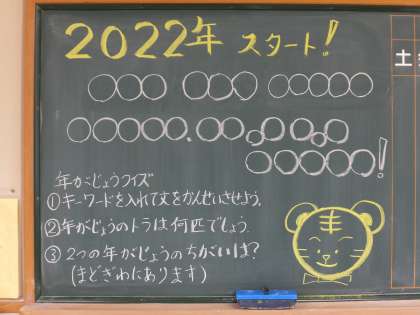 2022年 スタート!
○○○ ○○○ ○○○○○
○○○○○.○○○○○○
○○○○○!
年がじょうクイズ
①キーワードを入れて文をかんせいさせよう。
②年がじょうのトラは何匹でしょう。
③2つの年がじょうのちがいは?
(まどぎわにあります)
土